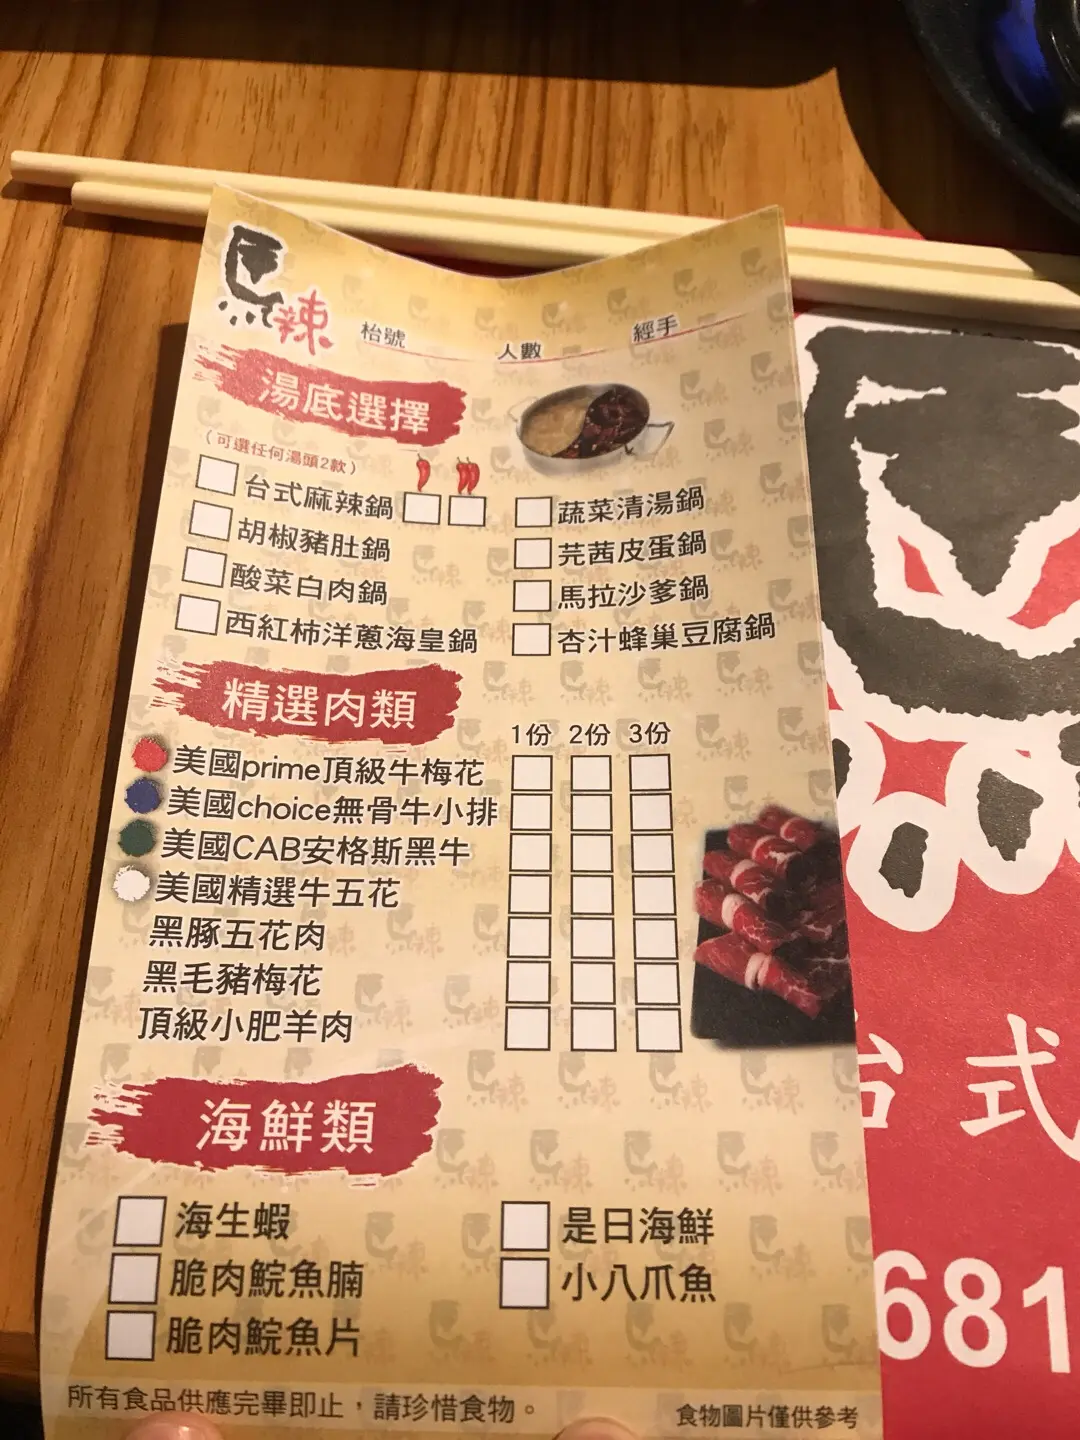 馬辣
枱號
人數
經手
湯底選擇
(可選任何湯頭2款)
台式麻辣鍋
胡椒豬肚鍋
酸菜白肉鍋
西紅柿洋蔥海皇鍋
蔬菜清湯鍋
芫茜皮蛋鍋
馬拉沙爹鍋
杏汁蜂巢豆腐鍋
精選肉類
1份 2份 3份
美國prime頂級牛梅花
美國choice無骨牛小排
美國CAB安格斯黑牛
美國精選牛五花
黑豚五花肉
黑毛豬梅花
頂級小肥羊肉
海鮮類
海生蝦
脆肉鯇魚腩
脆肉鯇魚片
是日海鮮
小八爪魚
所有食品供應完畢即止，請珍惜食物。
食物圖片僅供參考
台式
681